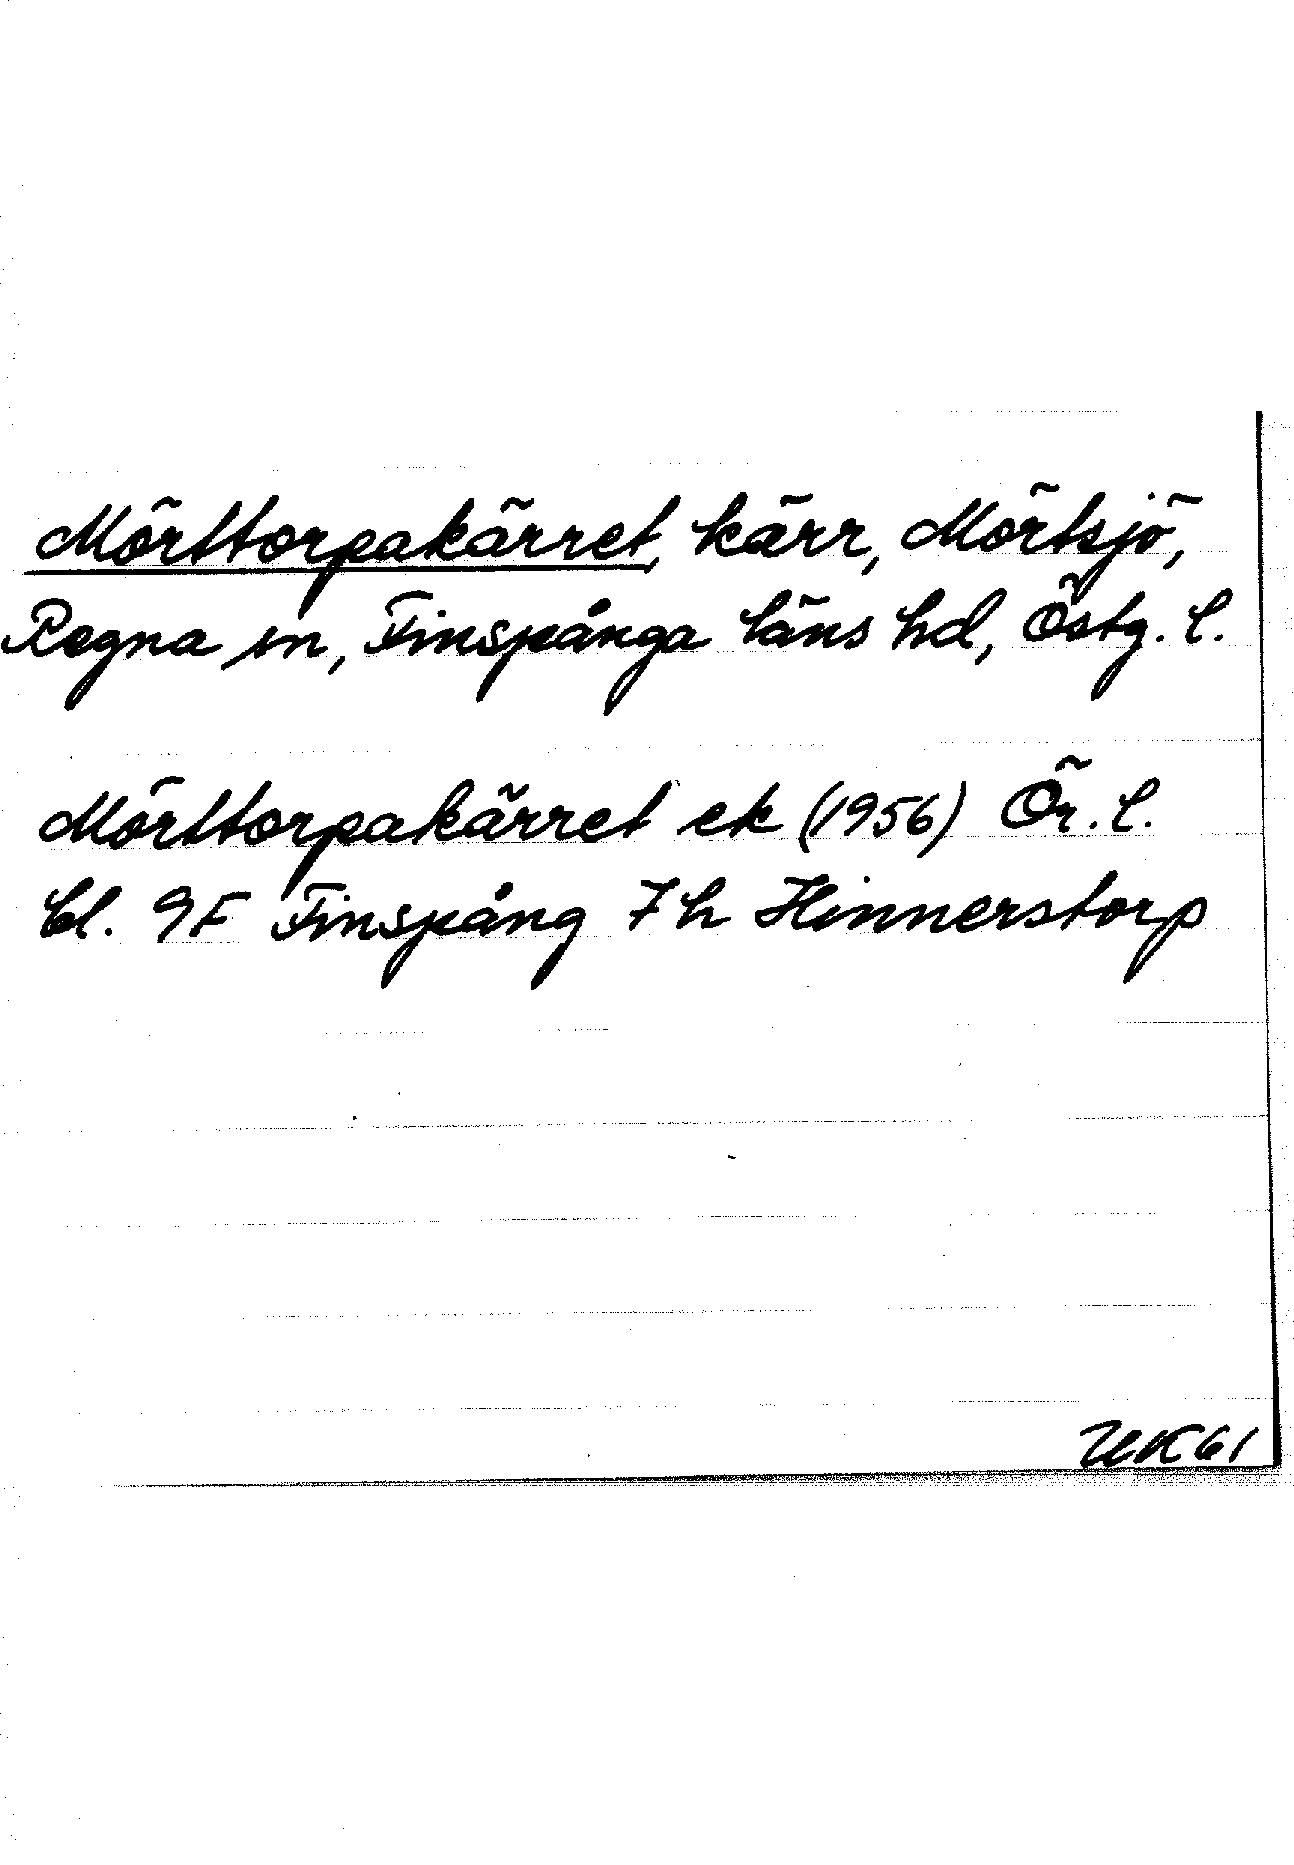 Mörttorpakärret, kärr, Mörtsjö,
Regna sn, Finspånga läns hd, Östg. l.
Mörttorpakärret ek (1956) Ör. l.
bl. 9F Finspång 7h Hinnerstorp
UK61